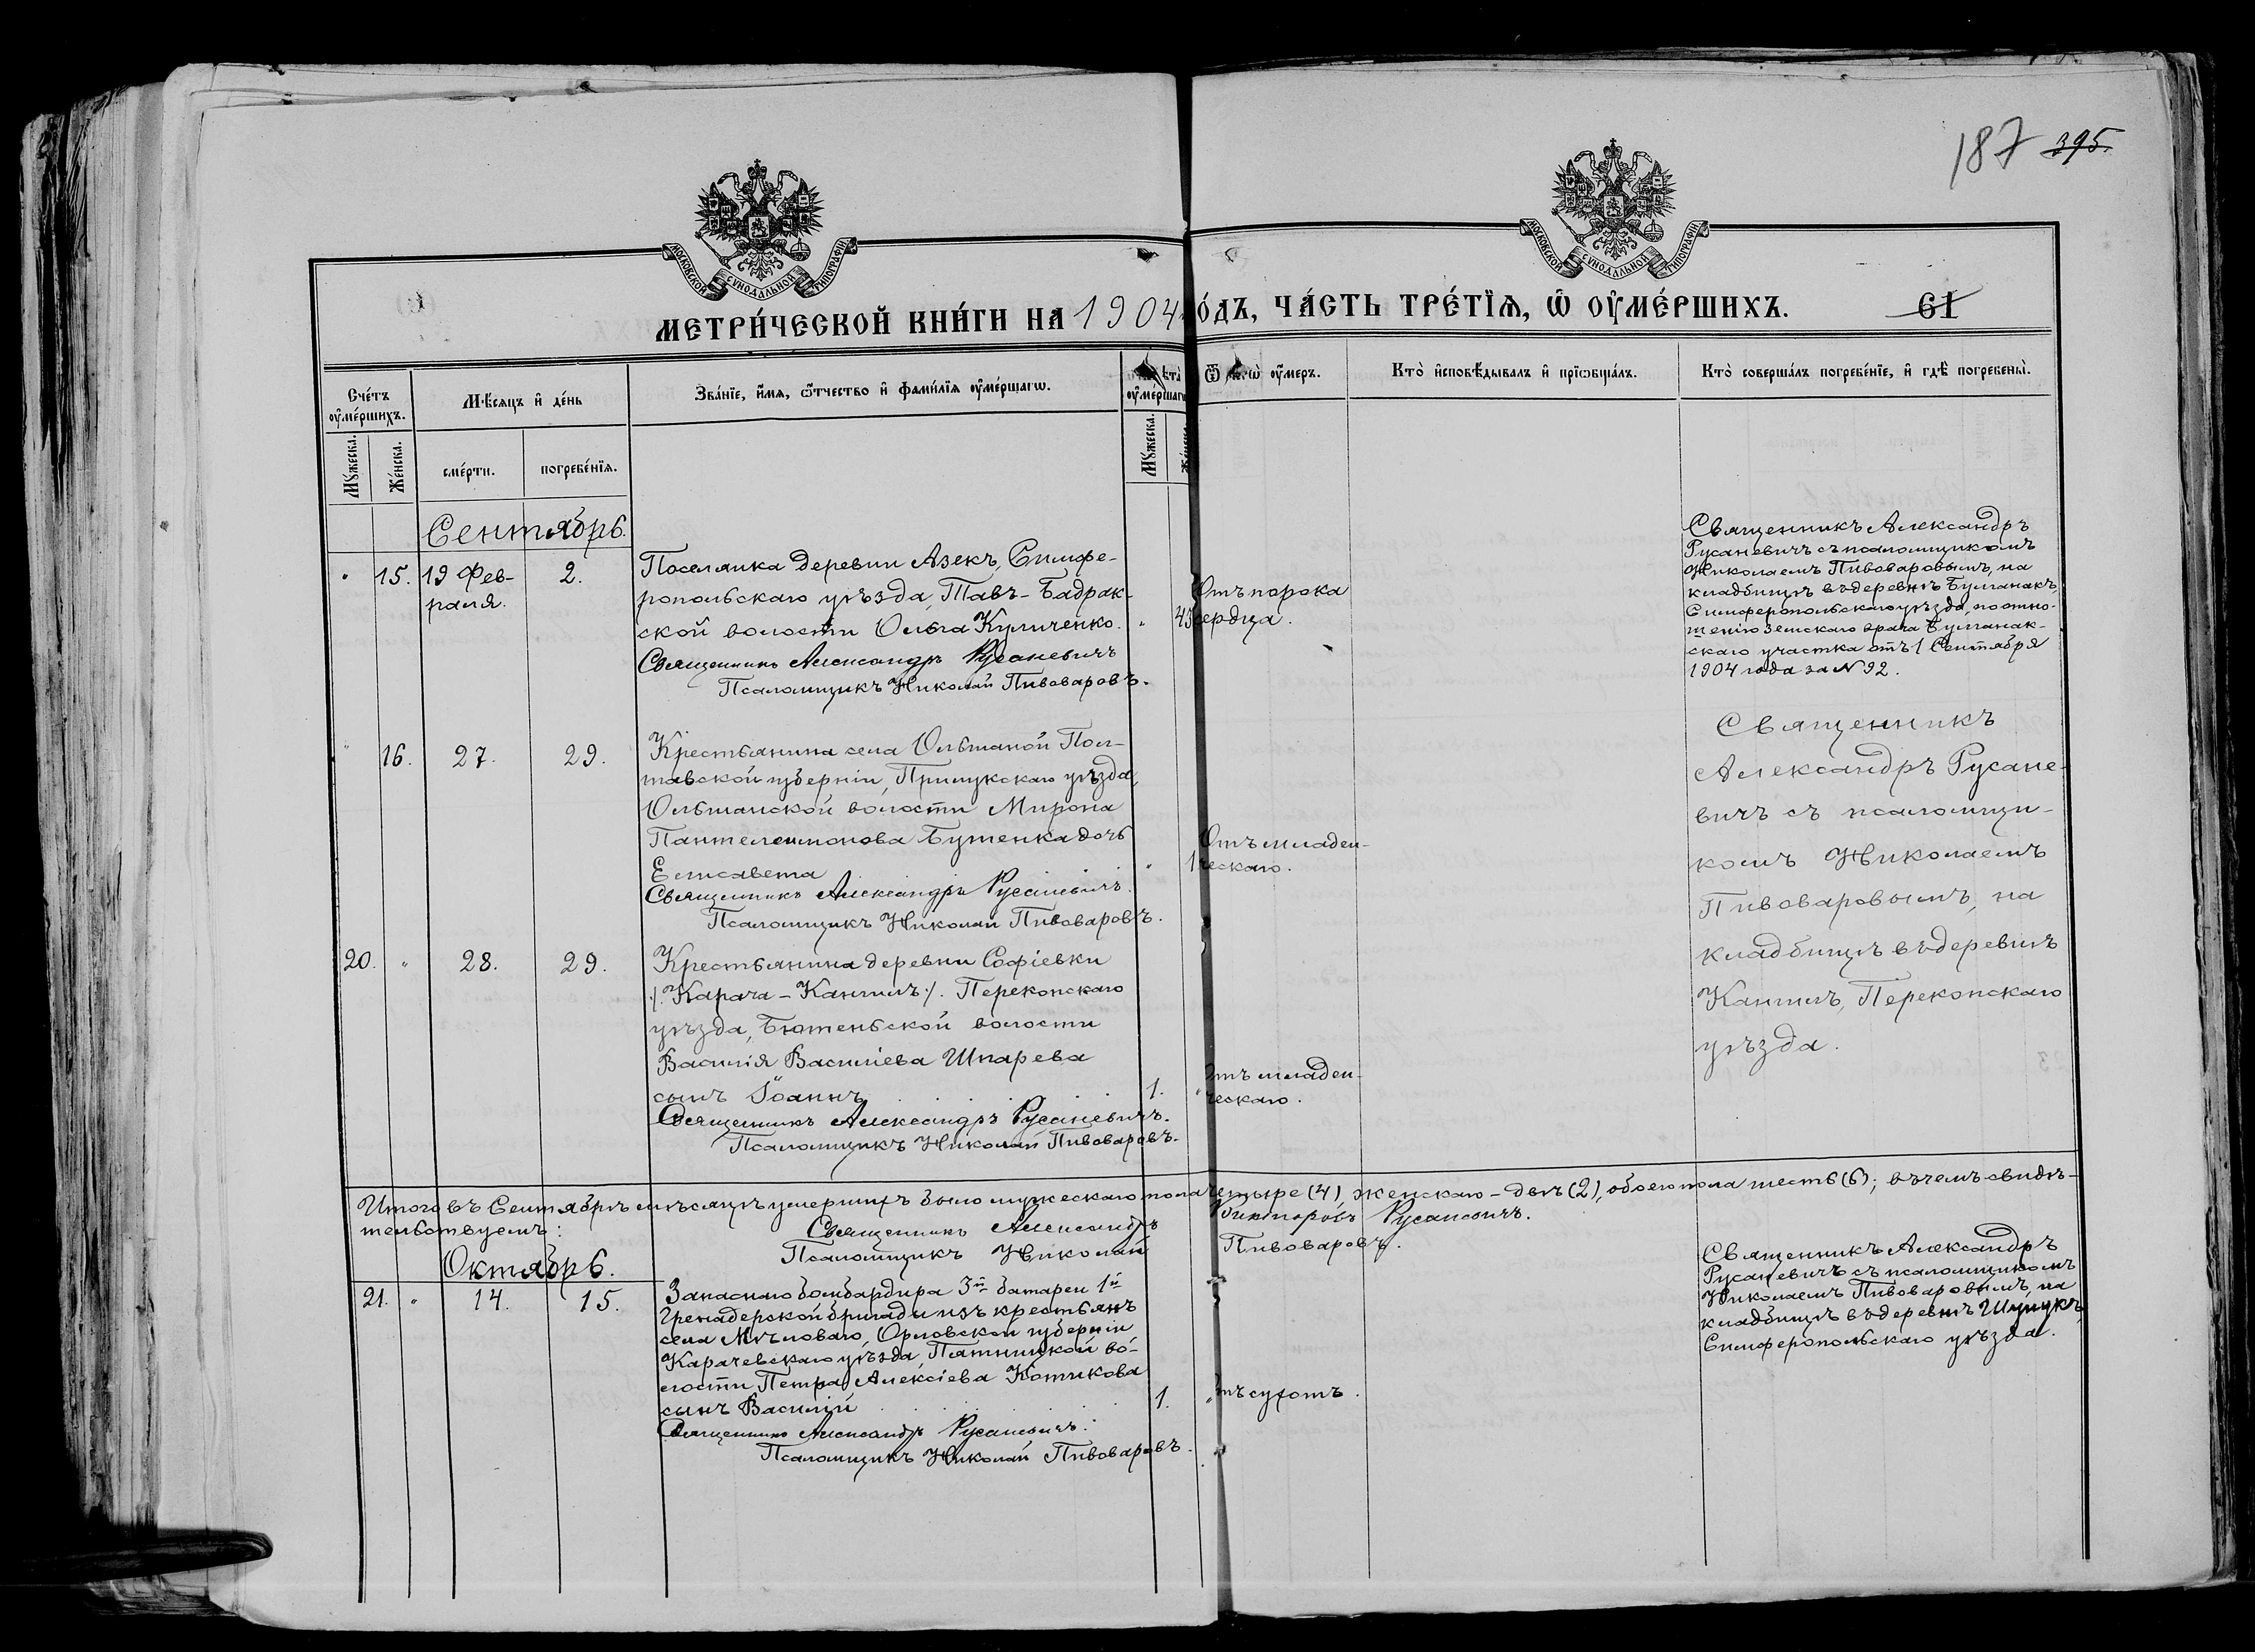 187 395.
МОСКОВСКОЙ СѴНОДАЛЬНОЙ ТИПОГРАФІИ
МОСКОВСКОЙ СѴНОДАЛЬНОЙ ТИПОГРАФІИ
МЕТРИ́ЧЕСКОЙ КНИ́ГИ НА 1904 ГО́ДЪ, ЧА́СТЬ ТРЕ́ТЇѦ, Ѡ҆ ОУ҆МЕ́РШИХЪ.
61
Сче́тъ оу҆ме́ршихъ.
Мꙋ́жеска.
Же́нска.
Мѣ́сѧцъ и҆ де́нь
сме́рти.
погребе́нїѧ.
Зва́нїе, и҆́мѧ, ѻ҆́тчество и҆ фами́лїѧ оу҆ме́ршагѡ.
лѣта̀ оу҆ме́ршагѡ
Мꙋ́жеска.
Же́нска.
Ѿ чегѡ̀ оу҆́меръ.
Кто̀ и҆сповѣ́дывалъ и҆ прїѡбща́лъ.
Кто̀ соверша́лъ погребе́нїе, и҆ гдѣ̀ погребены̀.
Сентябрь.
" 15. 19 Фев-
раля.
2.
Поселянка деревни Азекъ, Симфе-
ропольскаго уѣзда, Тавъ-Бадрак-
ской волости Ольга Куличенко.
Священникъ Александръ Русаневичъ
Псаломщикъ Николай Пивоваровъ.
" 45
Отъ порока
сердца.
Священникъ Александръ
Русаневичъ съ псаломщикомъ
Николаемъ Пивоваровымъ, на
кладбищѣ въ деревнѣ Булганакъ,
Симферопольскаго уѣзда, по отно-
шенію земскаго врача Булганак-
скаго участка отъ 1 Сентября
1904 года за № 92.
" 16. 27. 29.
Крестьянина села Ольшаной Пол-
тавской губерніи, Прилукскаго уѣзда,
Ольшанской волости Мирона
Пантелеимонова Бутенка дочь
Елисавета
Священникъ Александръ Русаневичъ.
Псаломщикъ Николай Пивоваровъ.
" 1
Отъ младен-
ческаго.
Священникъ
Александръ Русане-
вичъ съ псаломщи-
комъ Николаемъ
Пивоваровымъ, на
кладбищѣ въ деревнѣ
Кангилъ, Перекопскаго
уѣзда.
20. " 28. 29.
Крестьянина деревни Софіевки
/:Карача-Кангилъ:/. Перекопскаго
уѣзда, Бютеньской волости
Василія Василіева Шпарева
сынъ Іоаннъ
Священникъ Александръ Русаневичъ.
Псаломщикъ Николай Пивоваровъ.
1. "
Отъ младен-
ческаго.
Итого въ Сентябрѣ мѣсяцѣ умершихъ было мужескаго пола четыре (4), женскаго – двѣ (2), обоего пола шесть (6); въ чемъ свидѣ-
тельствуемъ:
Священникъ Александръ Русаневичъ.
Псаломщикъ Николай Пивоваровъ.
Октябрь.
21. " 14. 15.
Запаснаго бомбардира 3й батареи 1й
Гренадерской бригады изъ крестьянъ
села Мѣловаго, Орловской губерніи
Карачевскаго уѣзда, Пятницкой во-
лости Петра Алексіева Котикова
сынъ Василій
Священникъ Александръ Русаневичъ.
Псаломщикъ Николай Пивоваровъ.
1. "
Отъ сухотъ.
Священникъ Александръ
Русаневичъ съ псаломщикомъ
Николаемъ Пивоваровымъ, на
кладбищѣ въ деревнѣ Шунукъ,
Симферопольскаго уѣзда.